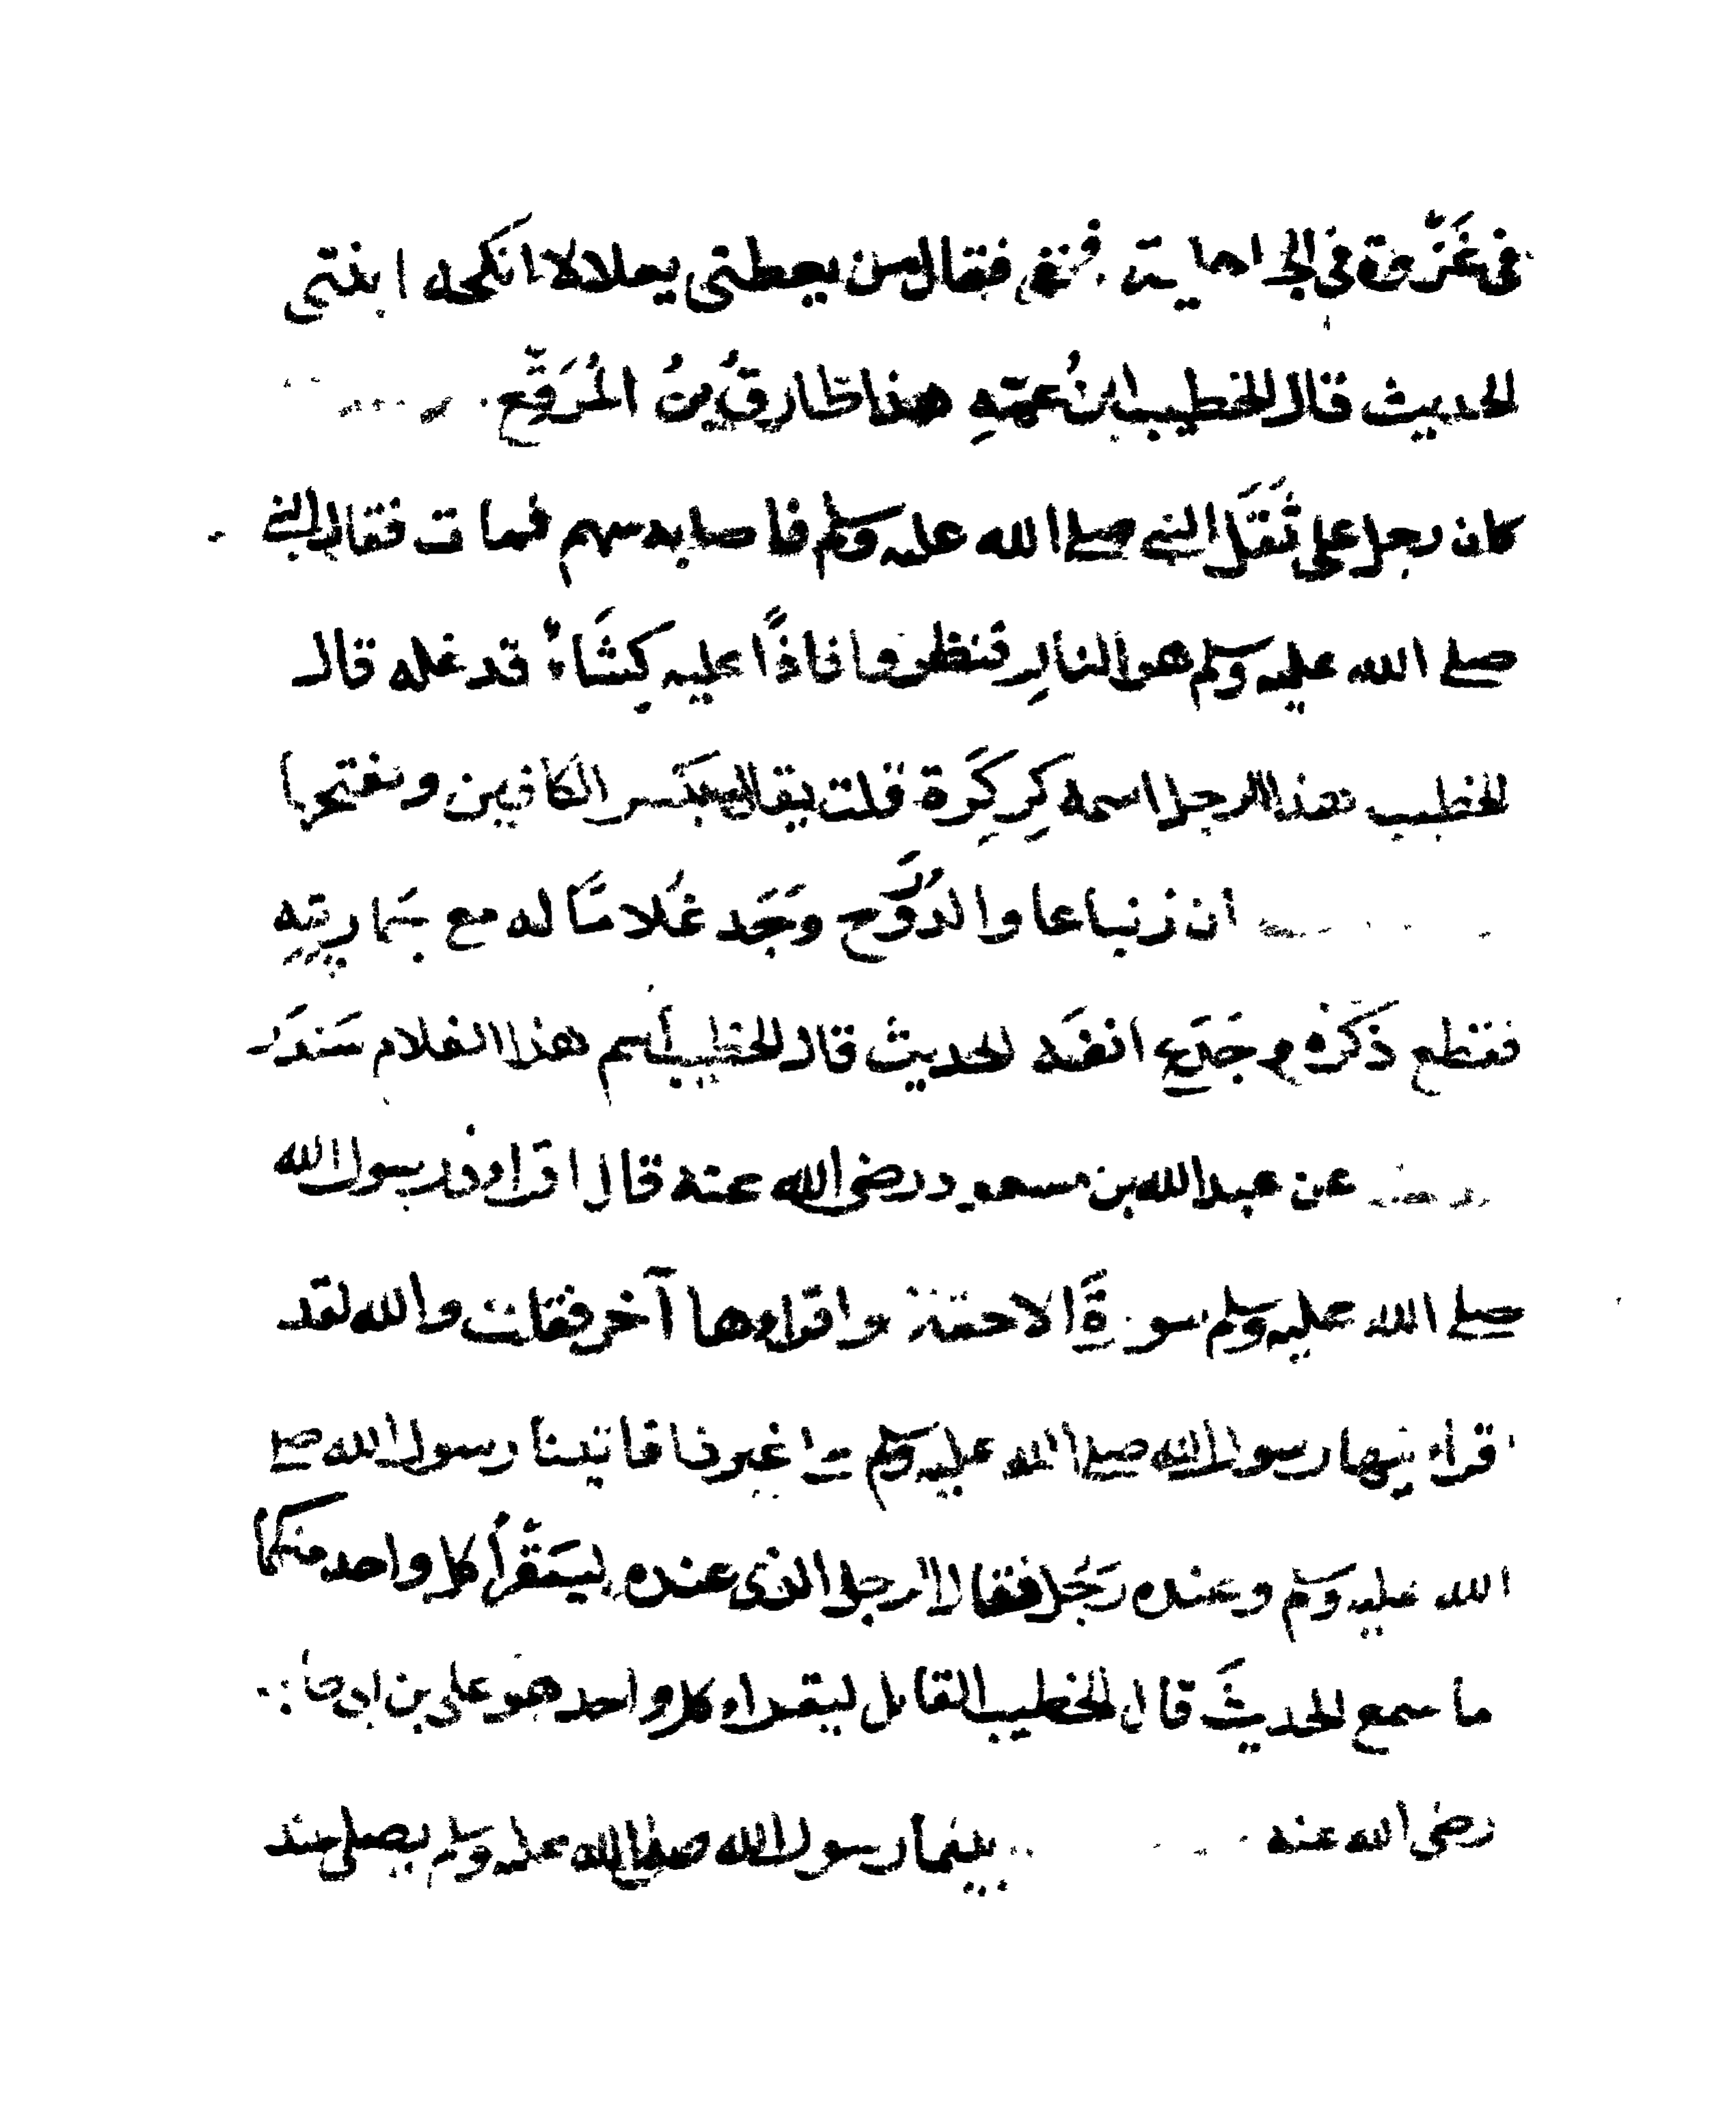 في غَزْوة في الجاهلية فقال من يعطني نعلا انكحه ابنتي
الحديث قال الخطيب ابنُ عمّهِ هذا طارقُ بنُ المُرَقَّع
كان رجل على ثَقَل النبي صلى الله عليه وسلم فاصابه سهم فمات فقال النبي
صلى الله عليه وسلم هو في النار فنظروا فاذًا عليه كِسَاءٌ قد غله قال
الخطيب هذا الرجل اسمه كِركِرَة قلت يقال بكسر الكافين وبفتحها
ان زنباعا والد رَوْح وَجَد غُلامًا له مع جَاريتِهِ
فقطع ذَكَرَه وجَدَع انفَه الحديث قال الخطيب اسم هذا الغلام سَندَر
عن عبد الله بن مسعود رضي الله عنه قال اقراني رسول الله
صلى الله عليه وسلم سورةَ الاحقاف واقراها آخر فقلت والله لقد
اقرانيها رسول الله صلى الله عليه وسلم غير ذا فاتينا رسول الله صلى
الله عليه وسلم وعنده رَجُل فقال الرجل الذي عنده ليَقْرأ كل واحد منكما
ما سمع الحديثَ قال الخطيب القائل ليقراء كل واحد هو علي بن ابي طالب
رضي الله عنه بينما رسول الله صلى الله عليه وسلم يصلي عند